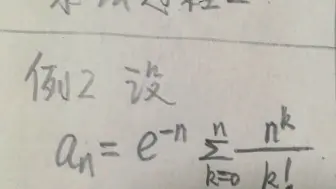 例2 设
aₙ = e⁻ⁿ ∑ₖ₌₀ⁿ nᵏ/k!